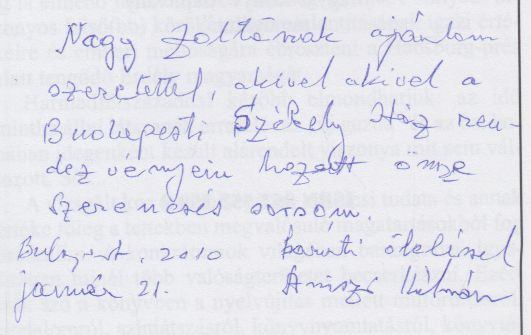 Nagy Zoltánnak ajánlom
szeretettel, akivel akivel a
Budapesti Székely Ház ren-
dezvényein hozott össze
szerencsés sorsom.
Budapest 2010 baráti öleléssel
január 21.